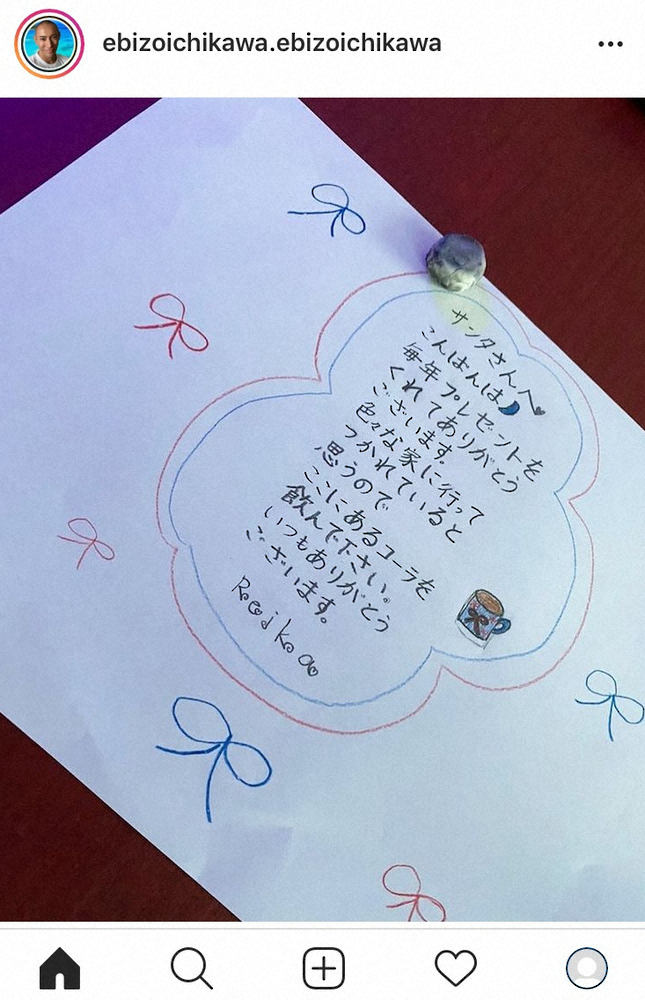 ebizoichikawa.ebizoichikawa
サンタさんへ
こんばんは
毎年プレゼントを
くれてありがとう
ございます。
色々な家に行って
つかれていると
思うので
ここにあるコーラを
飲んで下さい。
いつもありがとう
ございます。
Reika